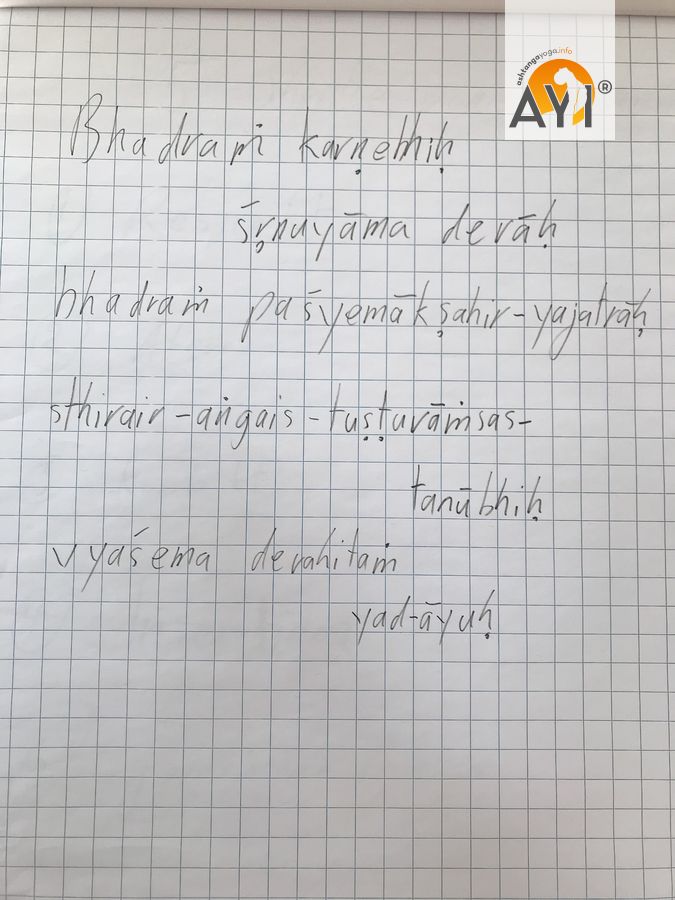 ashtangayoga.info
AYI®
Bhadraṁ karṇebhiḥ
śṛnuyāma devāḥ
bhadraṁ paśyemākṣahir-yajatrāḥ
sthirair-aṅgais-tuṣṭuvāṁsas-
tanūbhiḥ
vyaśema devahitaṁ
yad-āyuḥ